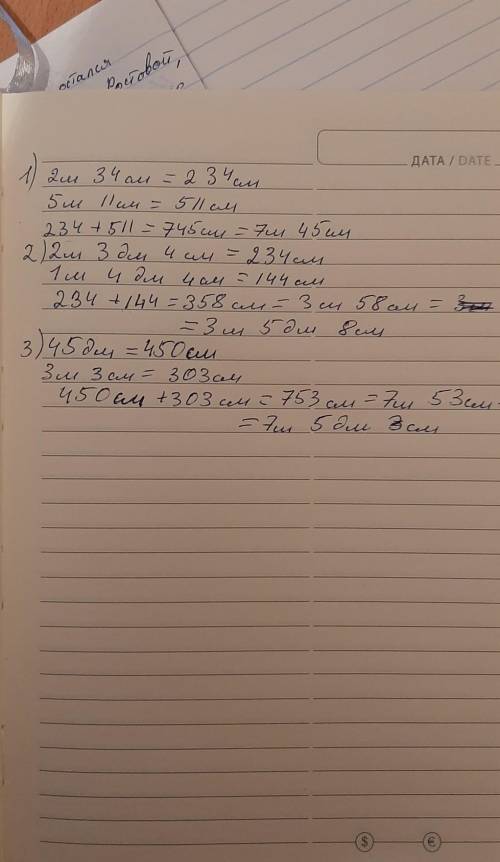 остался
Ростовой,
ДАТА / DATE
1) 2м 34см = 234см
5м 11см = 511см
234 + 511 = 745см = 7м 45см
2) 2м 3дм 4см = 234см
1м 4дм 4см = 144см
234 + 144 = 358см = 3м 58см =
= 3м 5дм 8см
3) 45дм = 450см
3м 3см = 303см
450см + 303см = 753см = 7м 53см
= 7м 5дм 3см
$ €